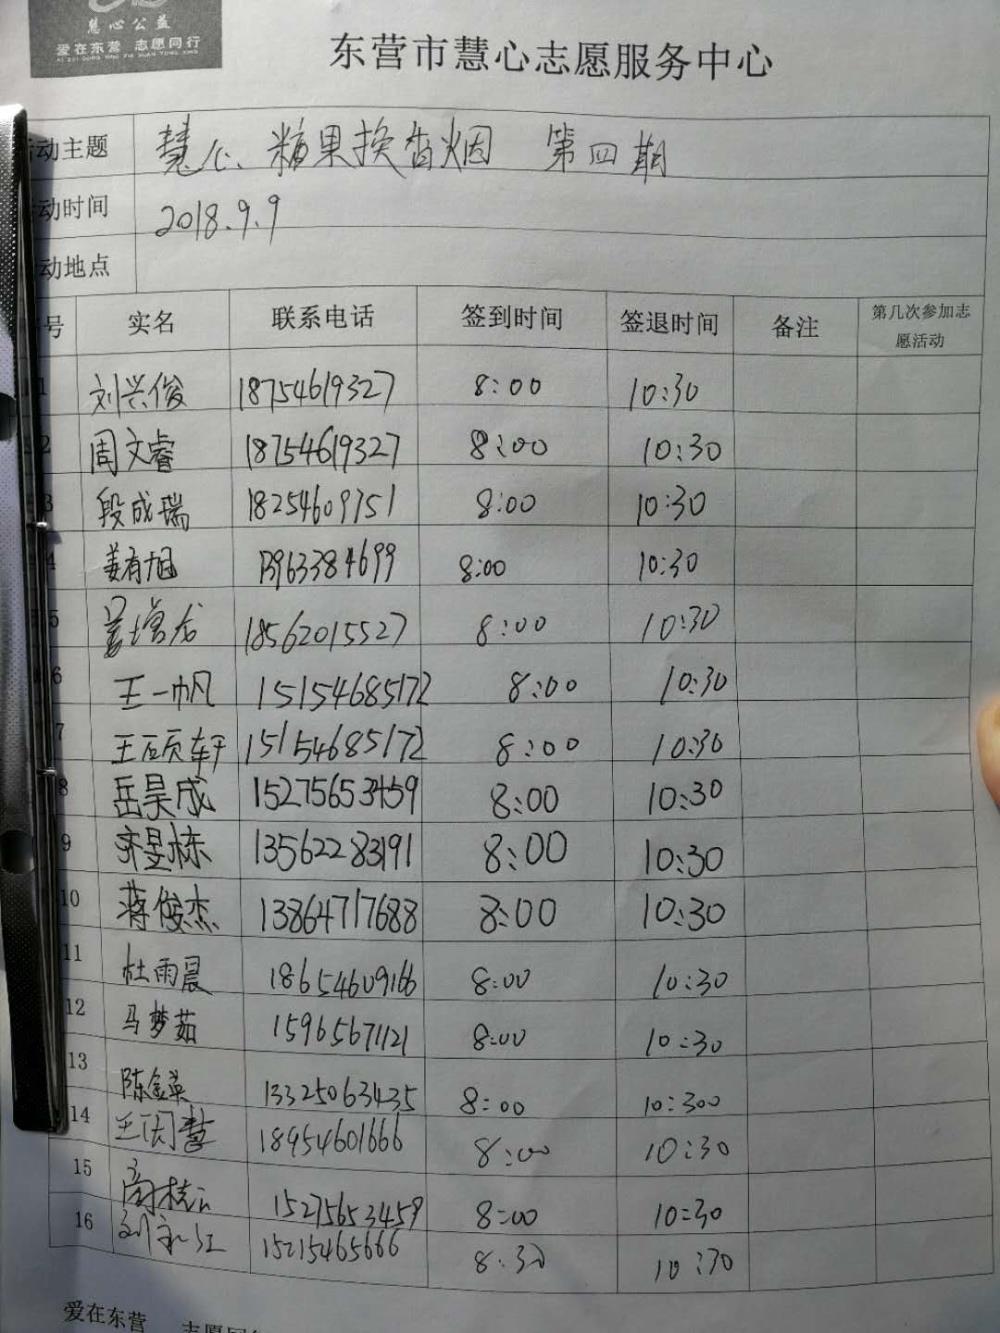 慧心公益
爱在东营 志愿同行
AI ZAI DONG YING ZHI YUAN TONG XING
东营市慧心志愿服务中心
动主题 慧心、糖果换香烟 第四期
动时间 2018.9.9
动地点
号 实名 联系电话 签到时间 签退时间 备注 第几次参加志愿活动
1 刘兴俊 18754619327 8:00 10:30
2 周文睿 18754619327 8:00 10:30
3 段成瑞 18254609751 8:00 10:30
4 姜有旭 13963384699 8:00 10:30
5 18562015527 8:00 10:30
6 王一帆 15154685172 8:00 10:30
7 王硕轩 15154685172 8:00 10:30
8 岳昊成 15275653459 8:00 10:30
9 齐昱栋 13562283191 8:00 10:30
10 蒋俊杰 13864717688 8:00 10:30
11 杜雨晨 18654609166 8:00 10:30
12 马梦茹 15965671121 8:00 10:30
13 陈金英 13325063435 8:00 10:300
14 18954601666 8:00 10:30
15 15275653459 8:00 10:30
16 15215465666 8:30 10:30
爱在东营